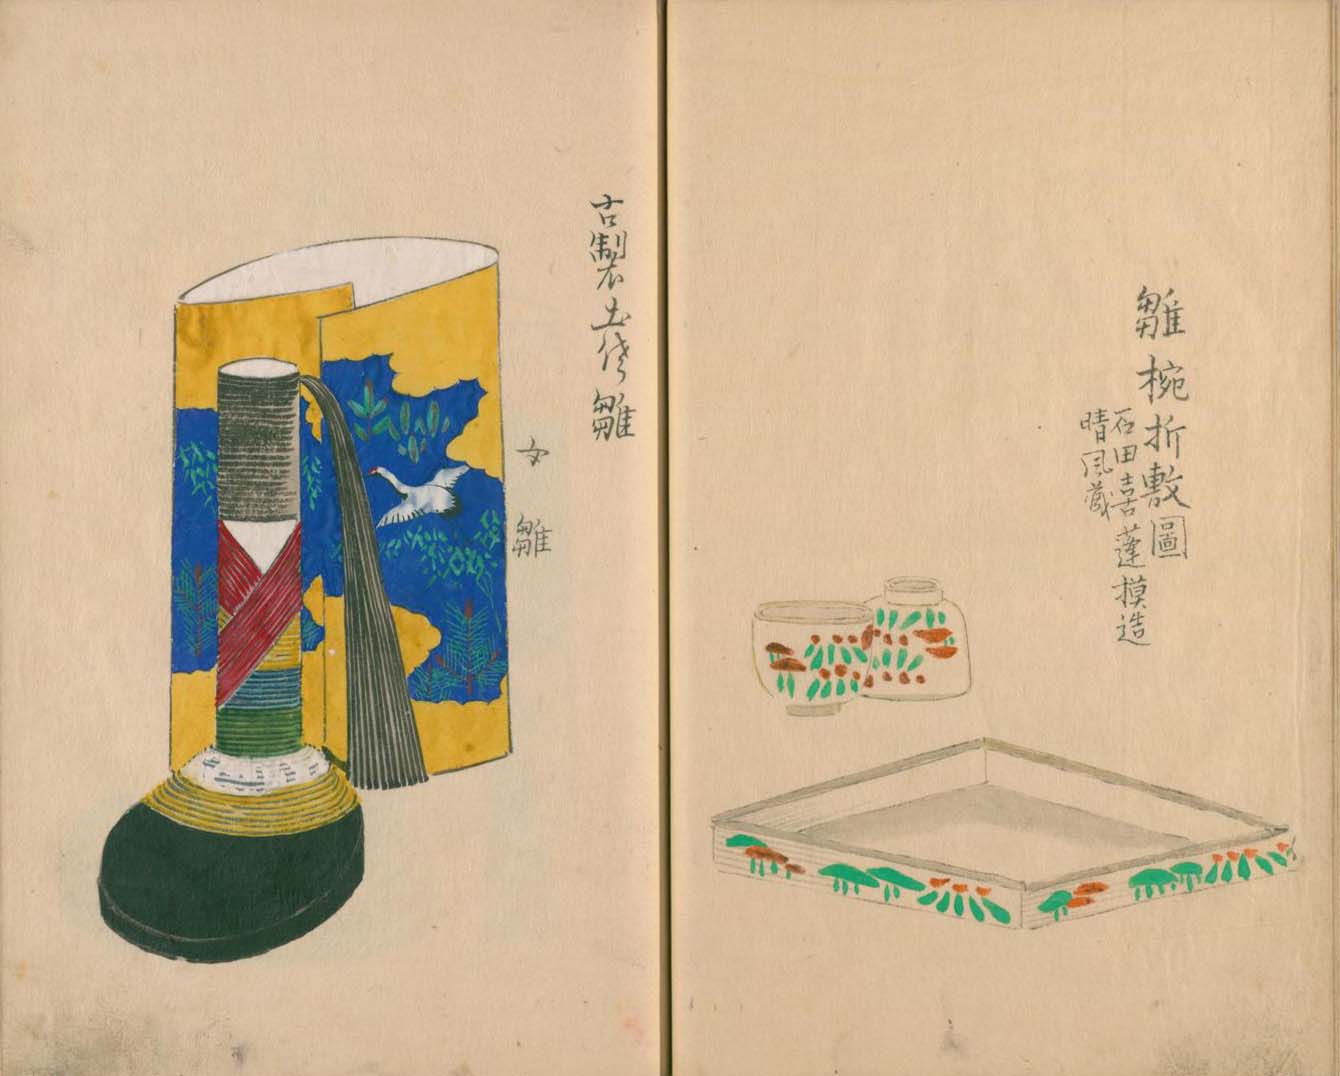 雛椀折敷圖
石田喜蓬摸造
晴風蔵
古製土偶雛
女雛